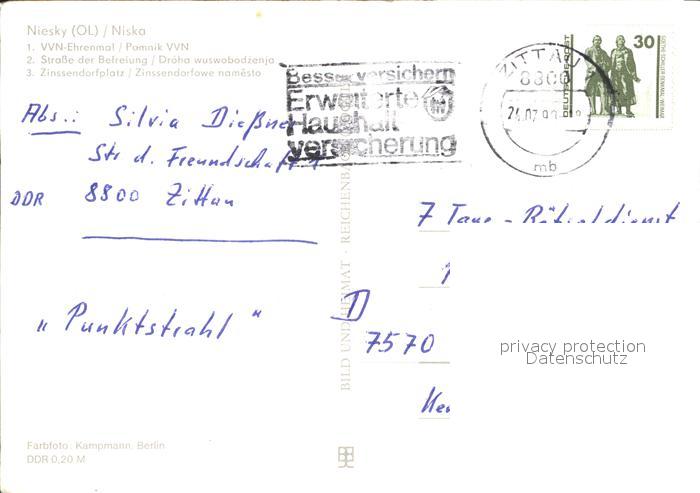 Niesky (OL) / Niska
1. VVN-Ehrenmal / Pomnik VVN
2. Straße der Befreiung / Dróha wuswobodźenja
3. Zinssendorfplatz / Zinssendorfowe naměsto
Besser versichern
Erweiterte
Haushalt
versicherung
ZITTAU
8800
24.07.90
mb
DEUTSCHE POST
30
GOETHE-SCHILLER-DENKMAL WEIMAR
Abs.: Silvia Dießne
Str d. Freundschaft 1
DDR 8800 Zittau
7 Tage - Rätseldienst
1
„Punktstrahl"
D
7570
BILD UND HEIMAT · REICHENBACH
privacy protection
Datenschutz
Farbfoto: Kampmann, Berlin
DDR 0,20 M